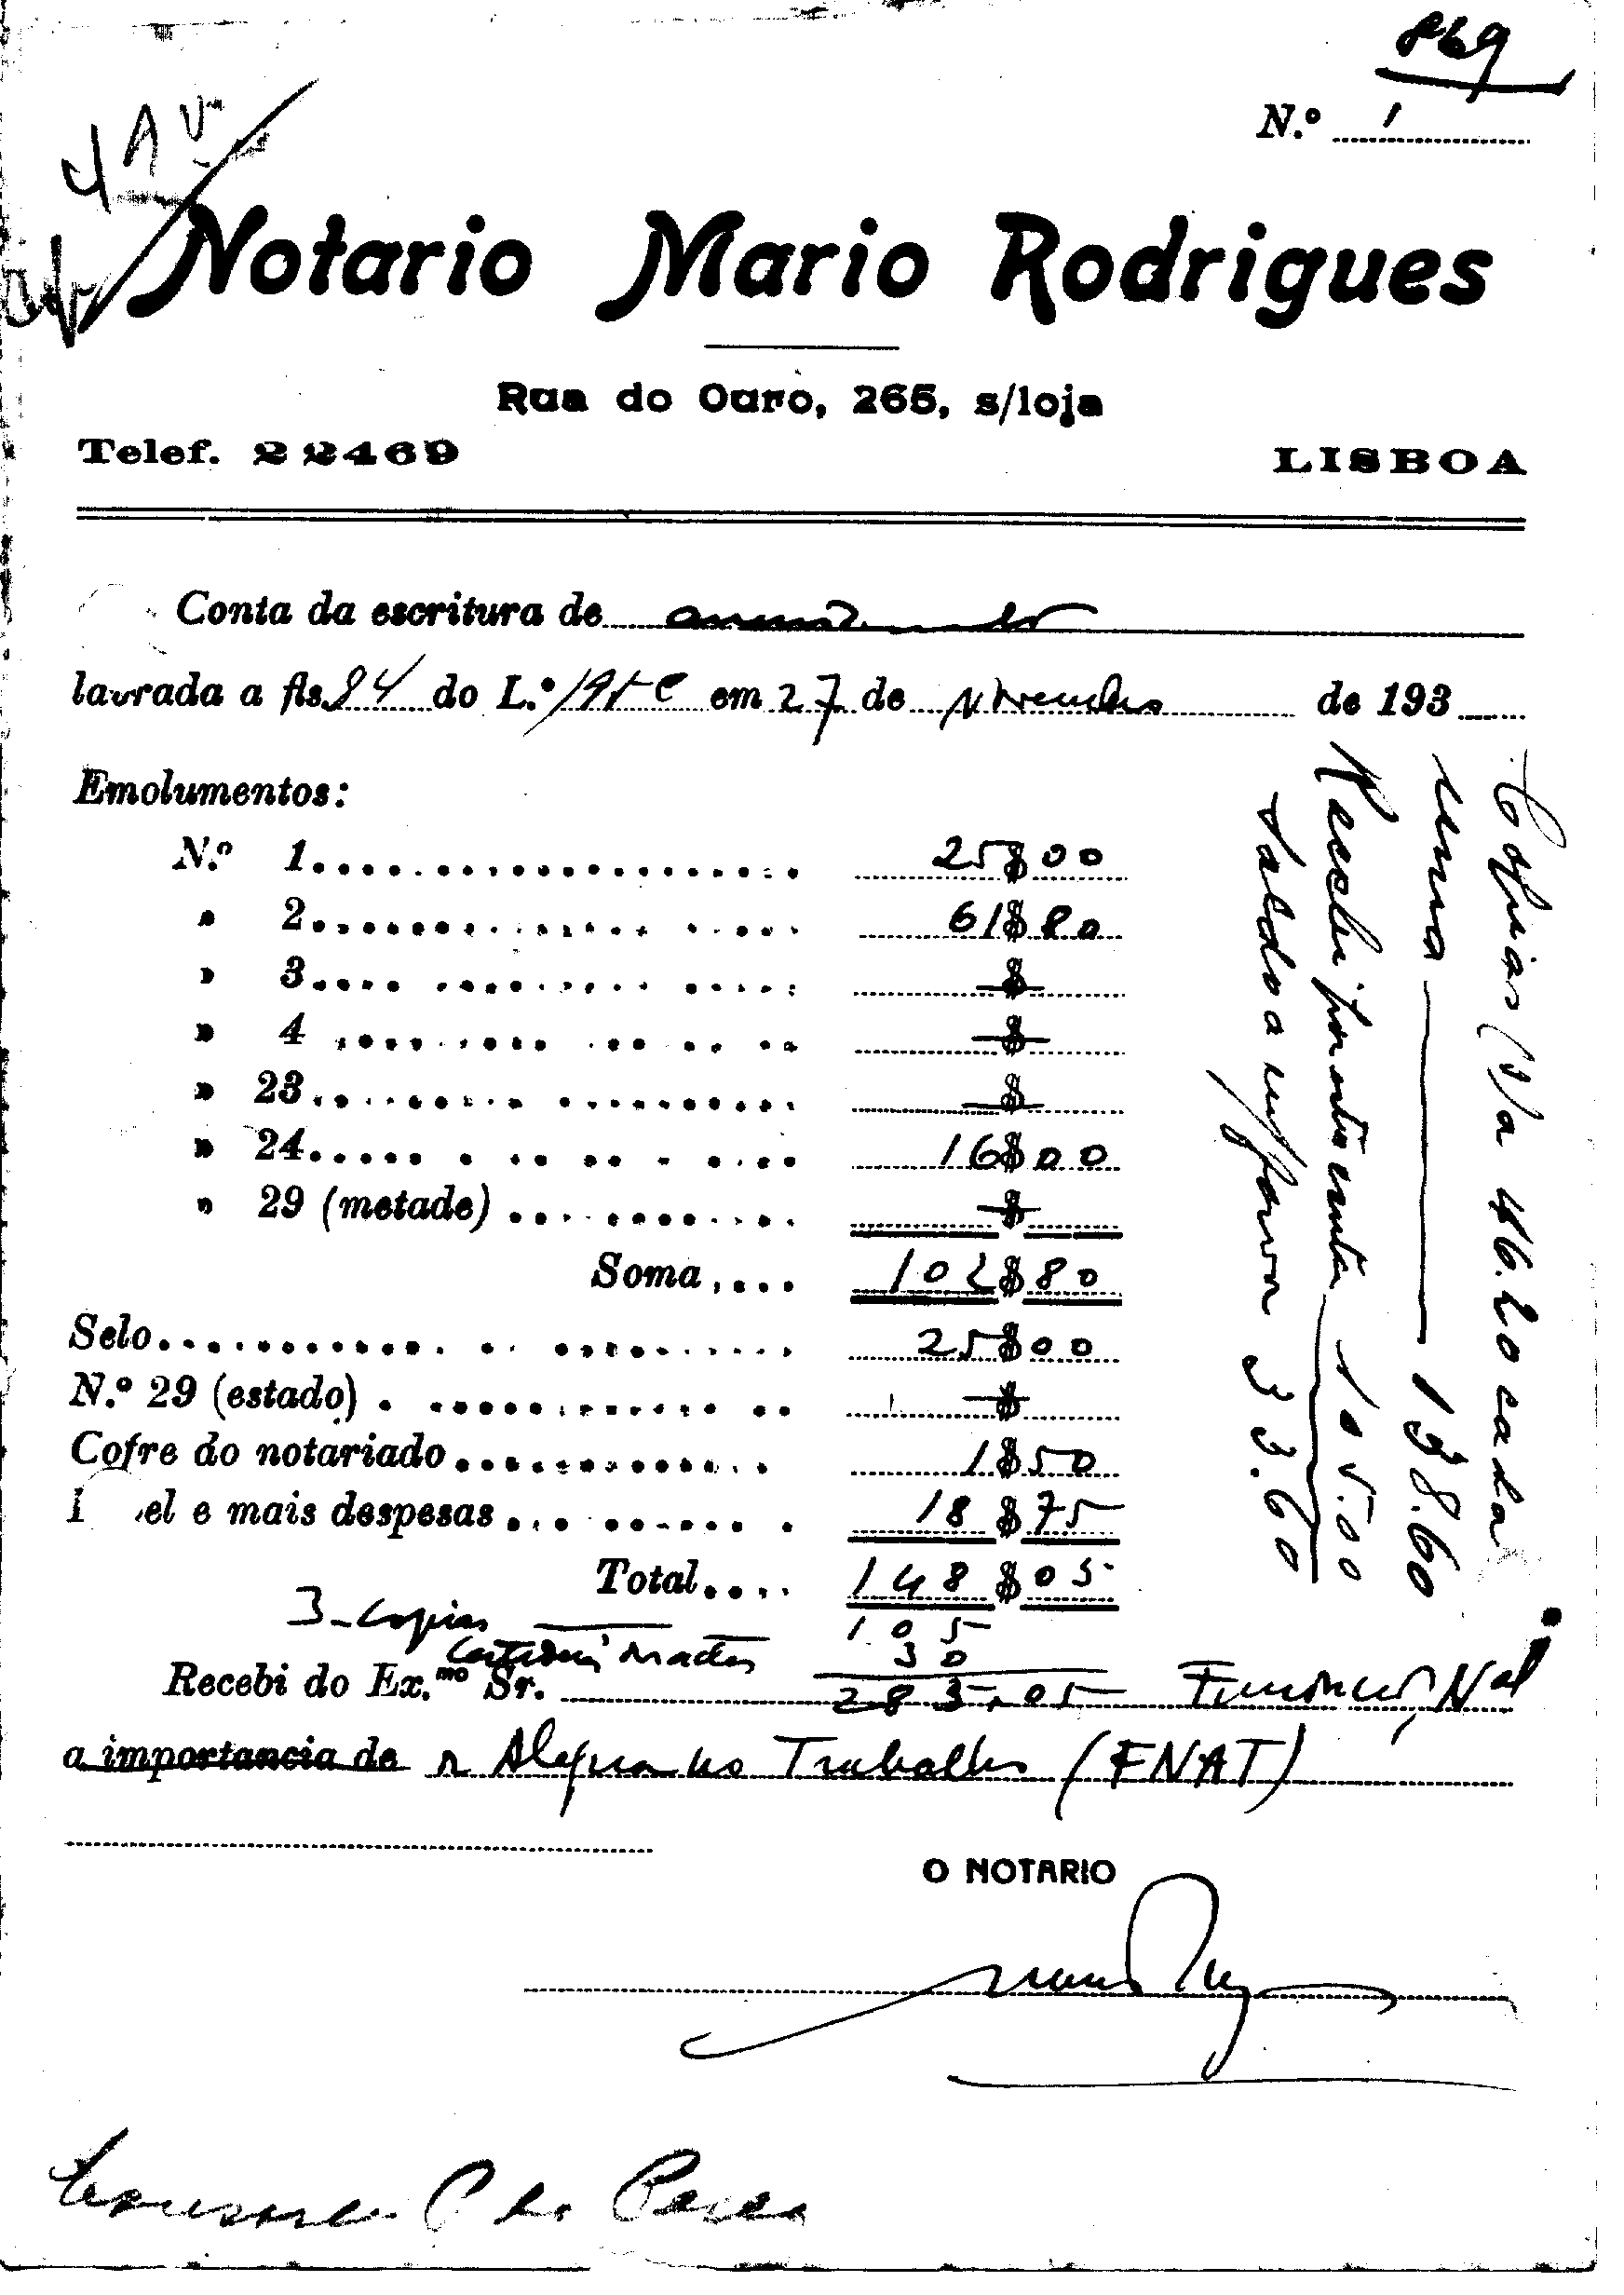 869
N.º 1
Notario Mario Rodrigues
Rua do Ouro, 265, s/loja
Telef. 22469 LISBOA
Conta da escritura de
lavrada a fls. 94 do L.º em 27 de Novembro de 193
Emolumentos:
N.º 1 25$00
» 2 61$80
» 3 $
» 4 $
» 23 $
» 24 16$00
» 29 (metade) $
Soma 102$80
Selo 25$00
N.º 29 (estado) $
Cofre do notariado 1$50
el e mais despesas 18$75
Total 148$05
3 - Copias 105
30
Recebi do Ex.mo Sr. 283.05 Nal
a importancia de Alegria no Trabalho (FNAT)
O NOTARIO
Copias (3) a 46.20 cada
uma 138.60
Recebi por esta conta 105.00
Saldo a m/favor 33.60